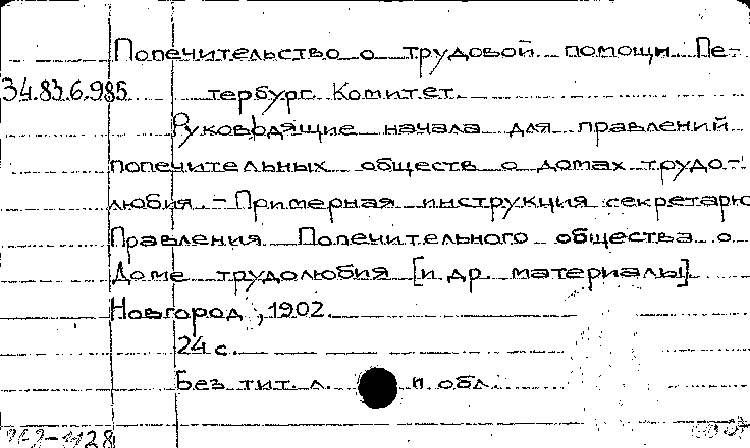 Попечительство о трудовой помощи Пе-
34.83.6.985 тербург. Комитет.
Руководящие начала для правлений
попечительных обществ о домах трудо-
любия. - Примерная инструкция секретарю
Правления Попечительного общества о
Доме трудолюбия [и др. материалы].
Новгород, 1902.
24 с.
Без тит. л. и обл.